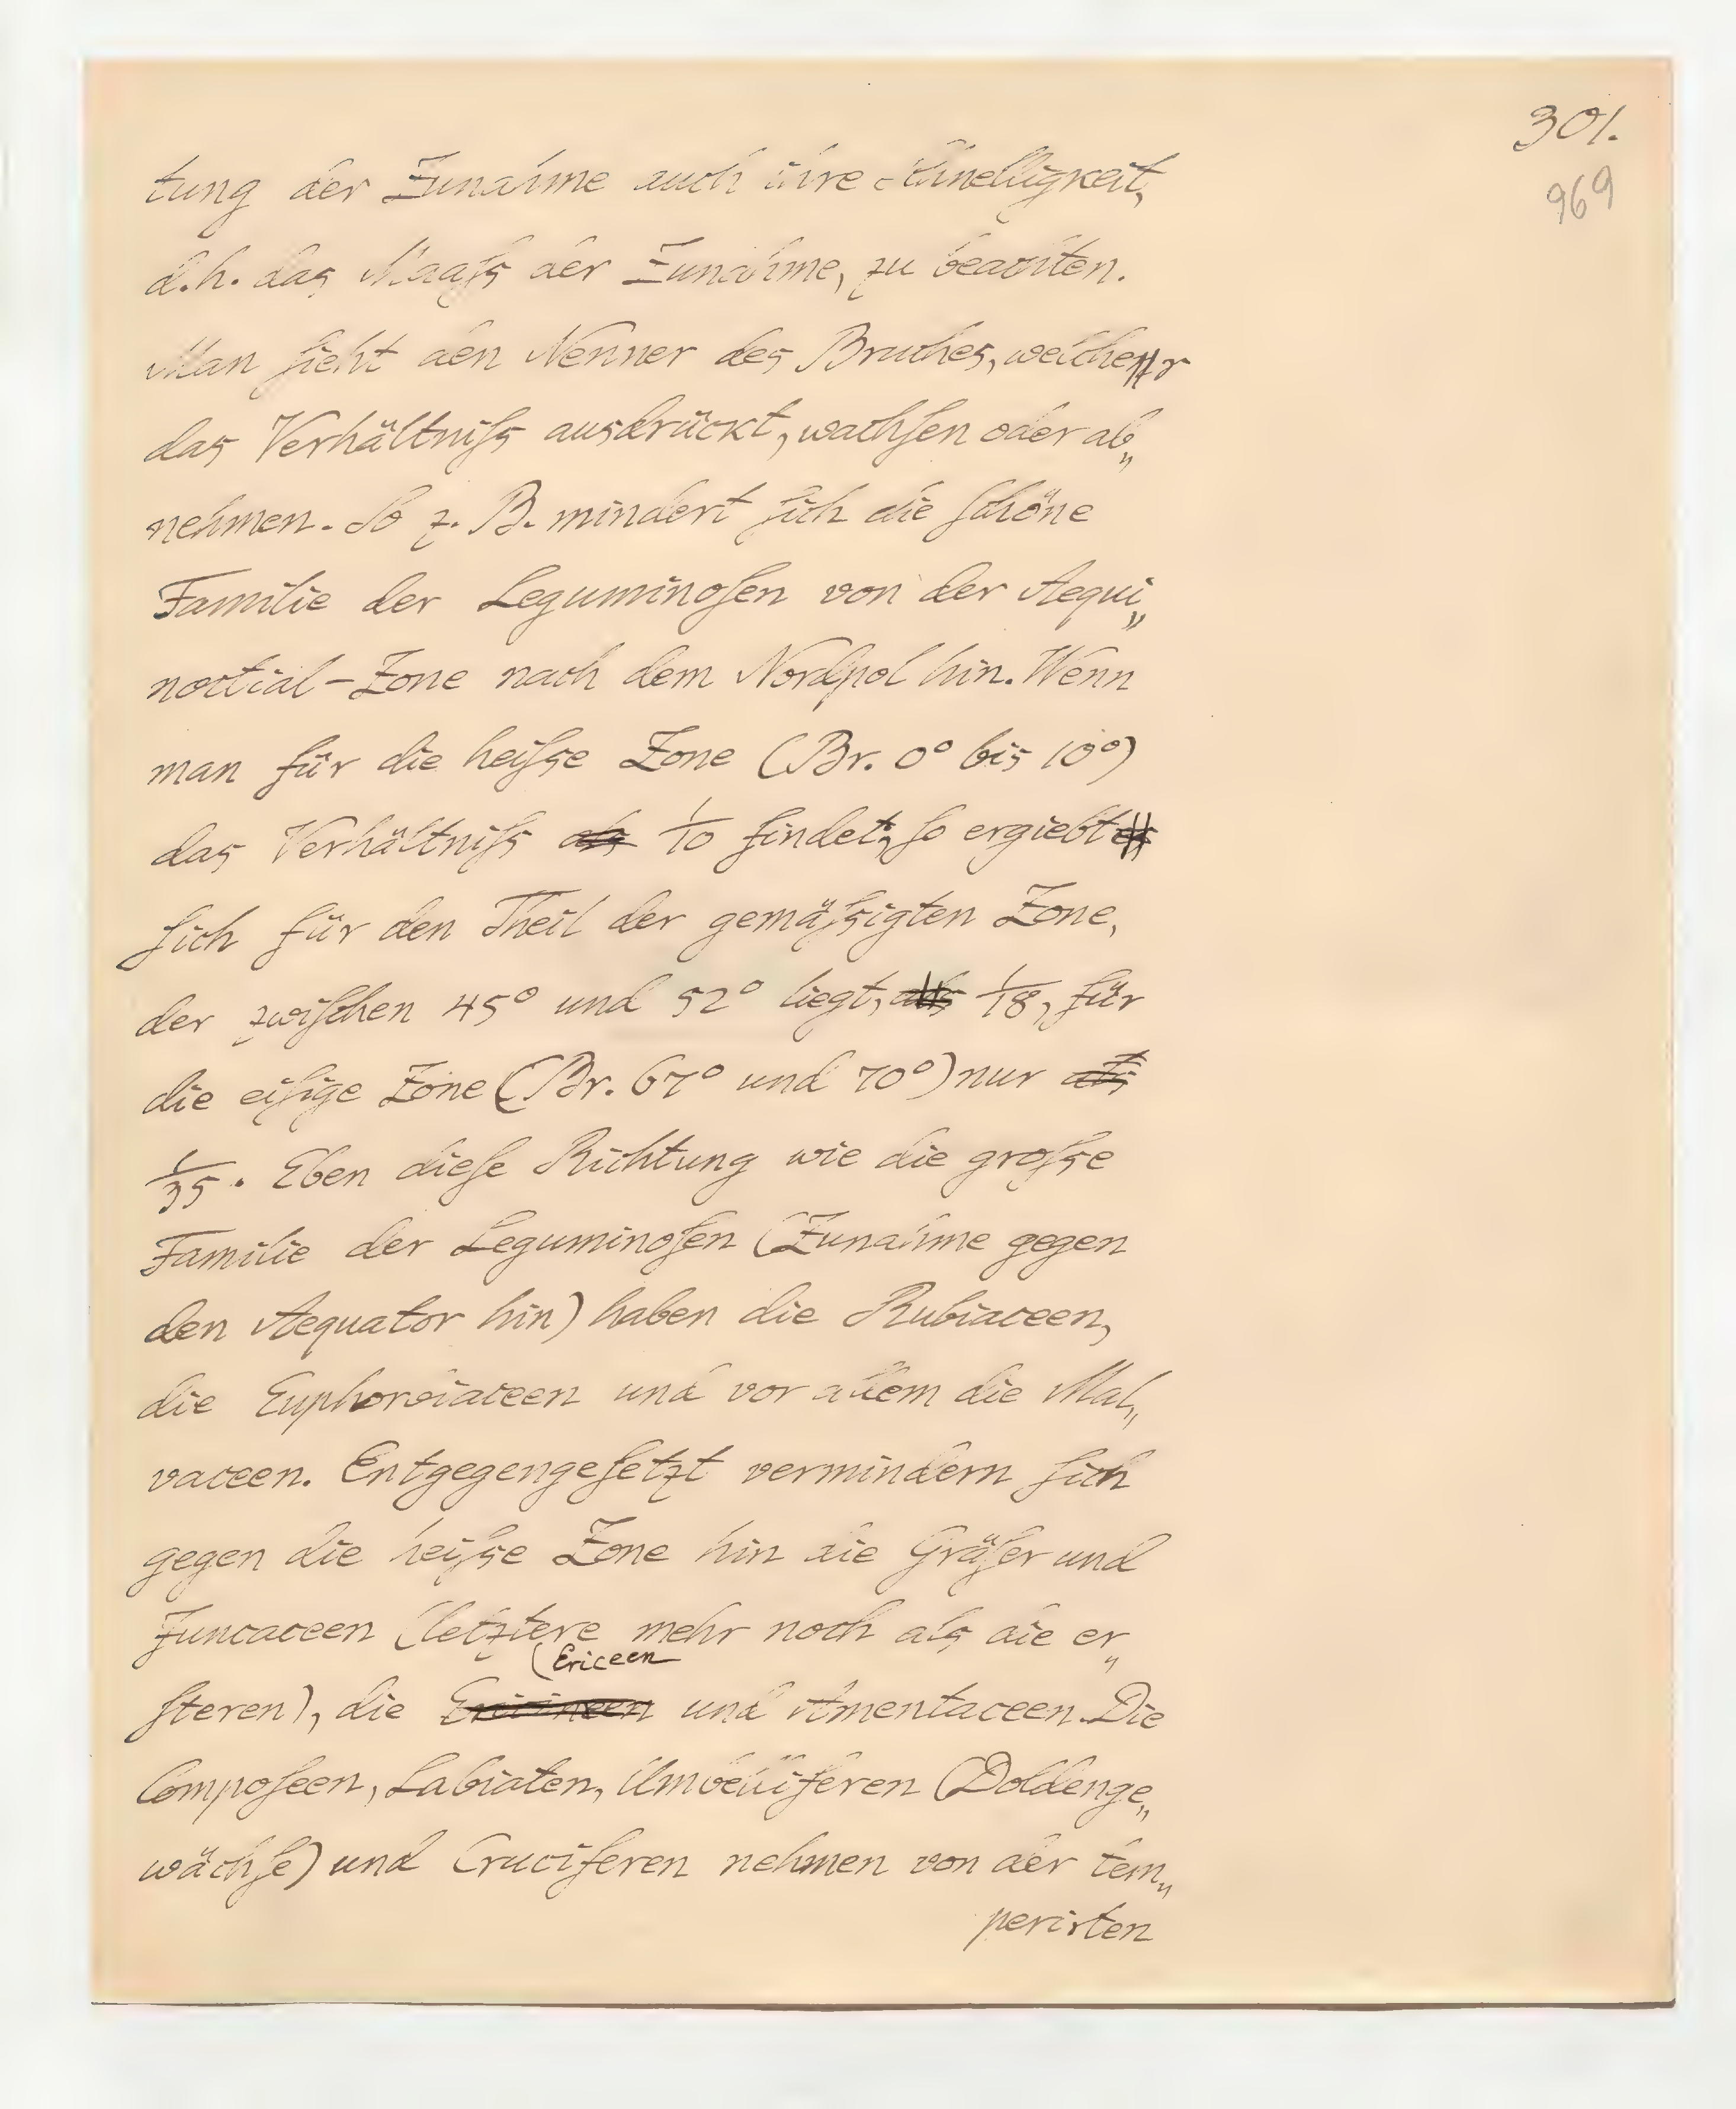 301.
969
tung der Zunahme auch ihre Schnelligkeit,
d. h. das Maaſs der Zunahme, zu beachten.
Man ſieht den Nenner des Bruches, welcher
das Verhältniſs ausdrückt, wachſen oder ab„
nehmen. So z. B. mindert ſich die ſchöne
Familie der Leguminoſen von der Aequi„
noctial-Zone nach dem Nordpol hin. Wenn
man für die heiſse Zone (Br. 0° bis 10°)
das Verhältniſs als 1/10 findet, ſo ergiebt es
ſich für den Theil der gemäſsigten Zone,
der zwiſchen 45° und 52° liegt, als 1/18, für
die eiſige Zone (Br. 67° und 70°) nur als
1/35. Eben dieſe Richtung wie die groſse
Familie der Leguminoſen (Zunahme gegen
den Aequator hin) haben die Rubiaceen,
die Euphorbiaceen und vor allem die Mal„
vaceen. Entgegengeſetzt vermindern ſich
gegen die heiſse Zone hin die Gräſer und
Juncaceen (letztere mehr noch als die er„
(Ericeen
ſteren), die Ericineen und Amentaceen. Die
Compoſeen, Labiaten, Umbelliferen (Doldenge„
wächſe) und Cruciferen nehmen von der tem„
perirten